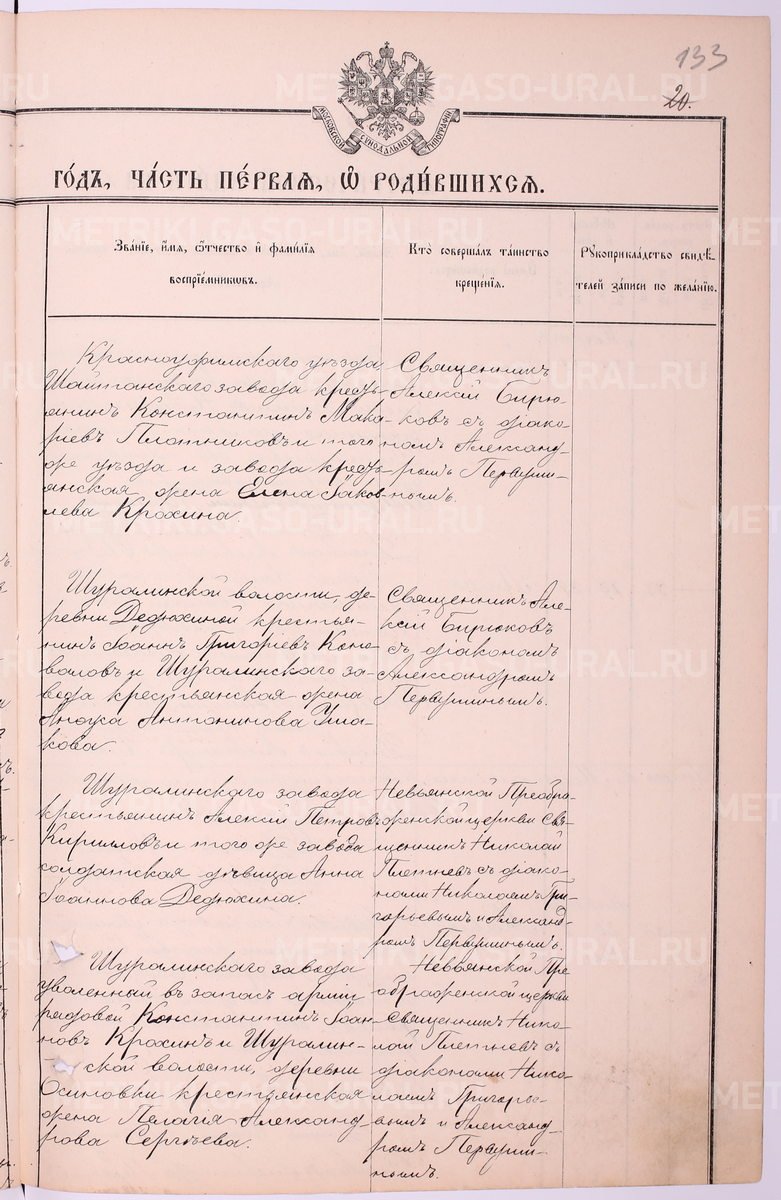 133
20.
МОСКОВСКОЙ СѴНОДАЛЬНОЙ ТИПОГРАФІИ
ГОДЪ, ЧАСТЬ ПЕРВАЯ, Ѡ РОДИВШИХСЯ.
Званіе, имя, отчество и фамилія
воспріемниковъ.
Кто совершалъ таинство
крещенія.
Рукоприкладство свидѣ-
телей записи по желанію.
Красноуфимскаго уѣзда
Шайтанскаго завода кресть-
янинъ Константинъ Мака-
ріевъ Плотниковъ и того
же уѣзда и завода кресть-
янская жена Елена Іаков-
лева Крохина.
Священникъ
Алексій Бирю-
ковъ съ діако-
номъ Александ-
ромъ Первуши-
нымъ.
Шуралинской волости, де-
ревни Дедюхиной крестья-
нинъ Іоаннъ Григоріевъ Коно-
валовъ и Шуралинскаго за-
вода крестьянская жена
Антонинова Уша-
кова.
Священникъ Але-
ксій Бирюковъ
съ діакономъ
Александромъ
Первушинымъ.
Шуралинскаго завода
крестьянинъ Алексій Петровъ
Кирилловъ и того же завода
солдатская дѣвица Анна
Іоаннова Дедюхина.
Невьянской Преобра-
женской церкви Свя-
щенникъ Николай
Плетневъ съ діако-
нами Николаемъ Гри-
горьевымъ и Александ-
ромъ Первушинымъ.
Шуралинскаго завода
уволенный въ запасъ арміи
рядовой Константинъ Іоан-
новъ Крохинъ и Шуралин-
ской волости, деревни
Осиновки крестьянская
жена Пелагія Александ-
рова Сергѣева.
Невьянской Пре-
ображенской церкви
Священникъ Нико-
лай Плетневъ съ
діаконами Нико-
лаемъ Григорье-
вымъ и Александ-
ромъ Первуши-
нымъ.
METRIKI.GASO-URAL.RU